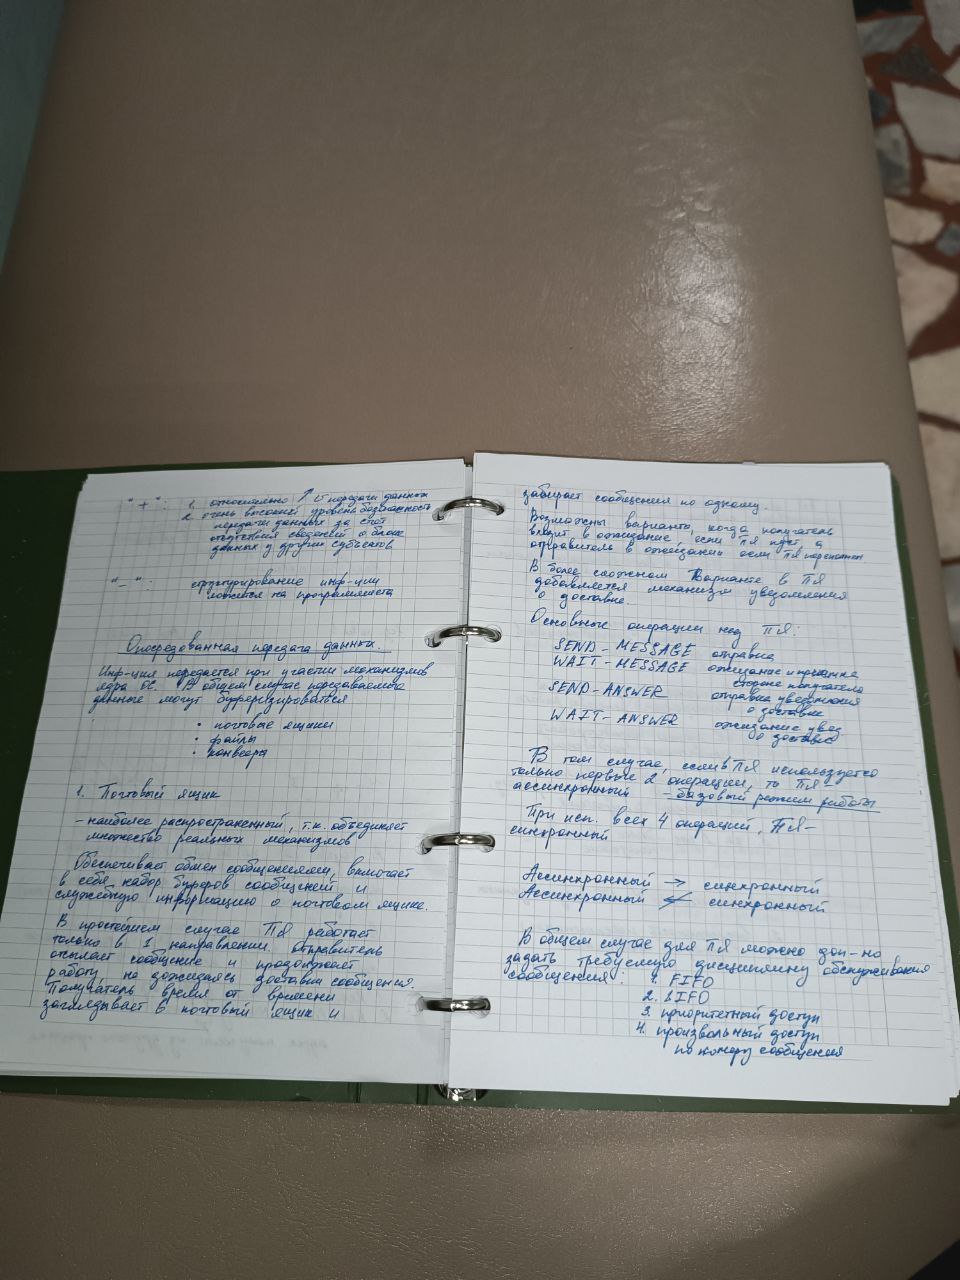 "+": 1. относительно ↑ υ передачи данных
2. очень высокий уровень безопасность
передачи данных за счёт
отсутствия сведений о блоке
данных у других субъектов
"-": структурирование инф-ции
ложится на программиста
Опосредованная передача данных.
Инф-ция передается при участии механизмов
ядра ОС. В общем случае передаваемые
данные могут буферизироваться
• почтовые ящики
• файлы
• конвееры
1. Почтовый ящик
- наиболее распространенный, т.к. объединяет
множество реальных механизмов
Обеспечивает обмен сообщениями, включает
в себя набор буферов сообщений и
служебную информацию о почтовом ящике.
В простейшем случае ПЯ работает
только в 1 направлении. отправитель
отсылает сообщение и продолжает
работу, не дожидаясь доставки сообщения.
Получатель время от времени
заглядывает в почтовый ящик и
забирает сообщения по одному.
Возможны варианты, когда получатель
входит в ожидание, если ПЯ пуст, а
отправитель в ожидании если ПЯ переполнен
В более сложном варианте в ПЯ
добавляется механизм уведомления
о доставке.
Основные операции над ПЯ:
SEND-MESSAGE отправка
WAIT-MESSAGE ожидание и
стороне получателя
SEND-ANSWER отправка уведомления
о доставке
WAIT-ANSWER ожидание увед
о доставке
В том случае, если в ПЯ используется
только первые 2 операции, то ПЯ -
ассинхронный - базовый режим работы
При исп. всех 4 операций, ПЯ -
синхронный
Ассинхронный → синхронный
Ассинхронный ↚ синхронный
В общем случае для ПЯ можно доп-но
задать требуемую дисциплину обслуживания
сообщения: 1. FIFO
2. LIFO
3. приоритетный доступ
4. произвольный доступ
по номеру сообщения